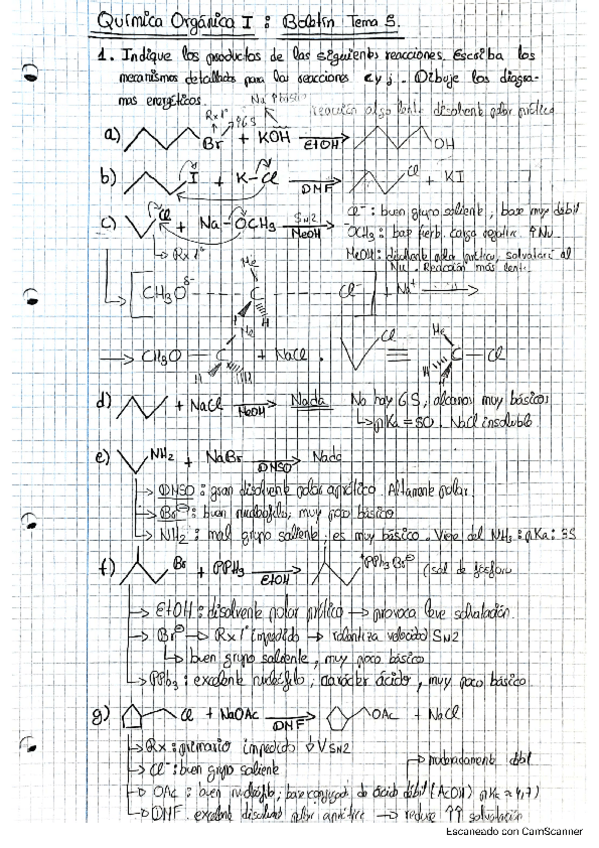 Química Orgánica I : Boletín Tema 5.
1. Indique los productos de las siguientes reacciones. Escriba los
mecanismos detallados para las reacciones c y j. Dibuje los diagra-
mas energéticos.
Reacción algo lenta disolvente polar prótico
Rx 1º
a) Br + KOH EtOH OH
b) I + K-Cl DMF Cl + KI
c) Cl + Na-OCH3 SN2 MeOH
Cl⁻: buen grupo saliente, base muy débil
OCH3: base fuerte. Carga negativa. ↑Nu.
MeOH: disolvente polar prótico, solvatará al
Nu. Reacción más lenta.
Rx 1º
Me
CH3O δ- C Cl + Na+
H H
Me Cl Me
CH3O C + NaCl. ≡ C Cl
H H H
d) + NaCl MeOH Nada No hay GS, alcanos muy básicos
pKa = 50. NaCl insoluble
e) NH2 + NaBr DMSO Nada
DMSO: gran disolvente polar aprótico. Altamente polar.
Br⊖: buen nucleófilo, muy poco básico
NH2: mal grupo saliente, es muy básico. Viene del NH3: pKa: 35
f) Br + PPh3 EtOH +PPh3 Br⊖ (sal de fósforo
EtOH: disolvente polar prótico → provoca leve solvatación.
Br⊖ → Rx 1º impedido → ralentiza velocidad SN2
buen grupo saliente, muy poco básico
PPh3: excelente nucleófilo, carácter ácido, muy poco básico
g) Cl + NaOAc DMF OAc + NaCl
Rx: primario impedido ↓V SN2
Cl⁻: buen grupo saliente
moderadamente débil
OAc: buen nucleófilo; base conjugada de ácido débil (AcOH) pKa ≈ 4,7)
DMF excelente disolvente polar aprótico → reduce ↑↑ solvatación
Escaneado con CamScanner